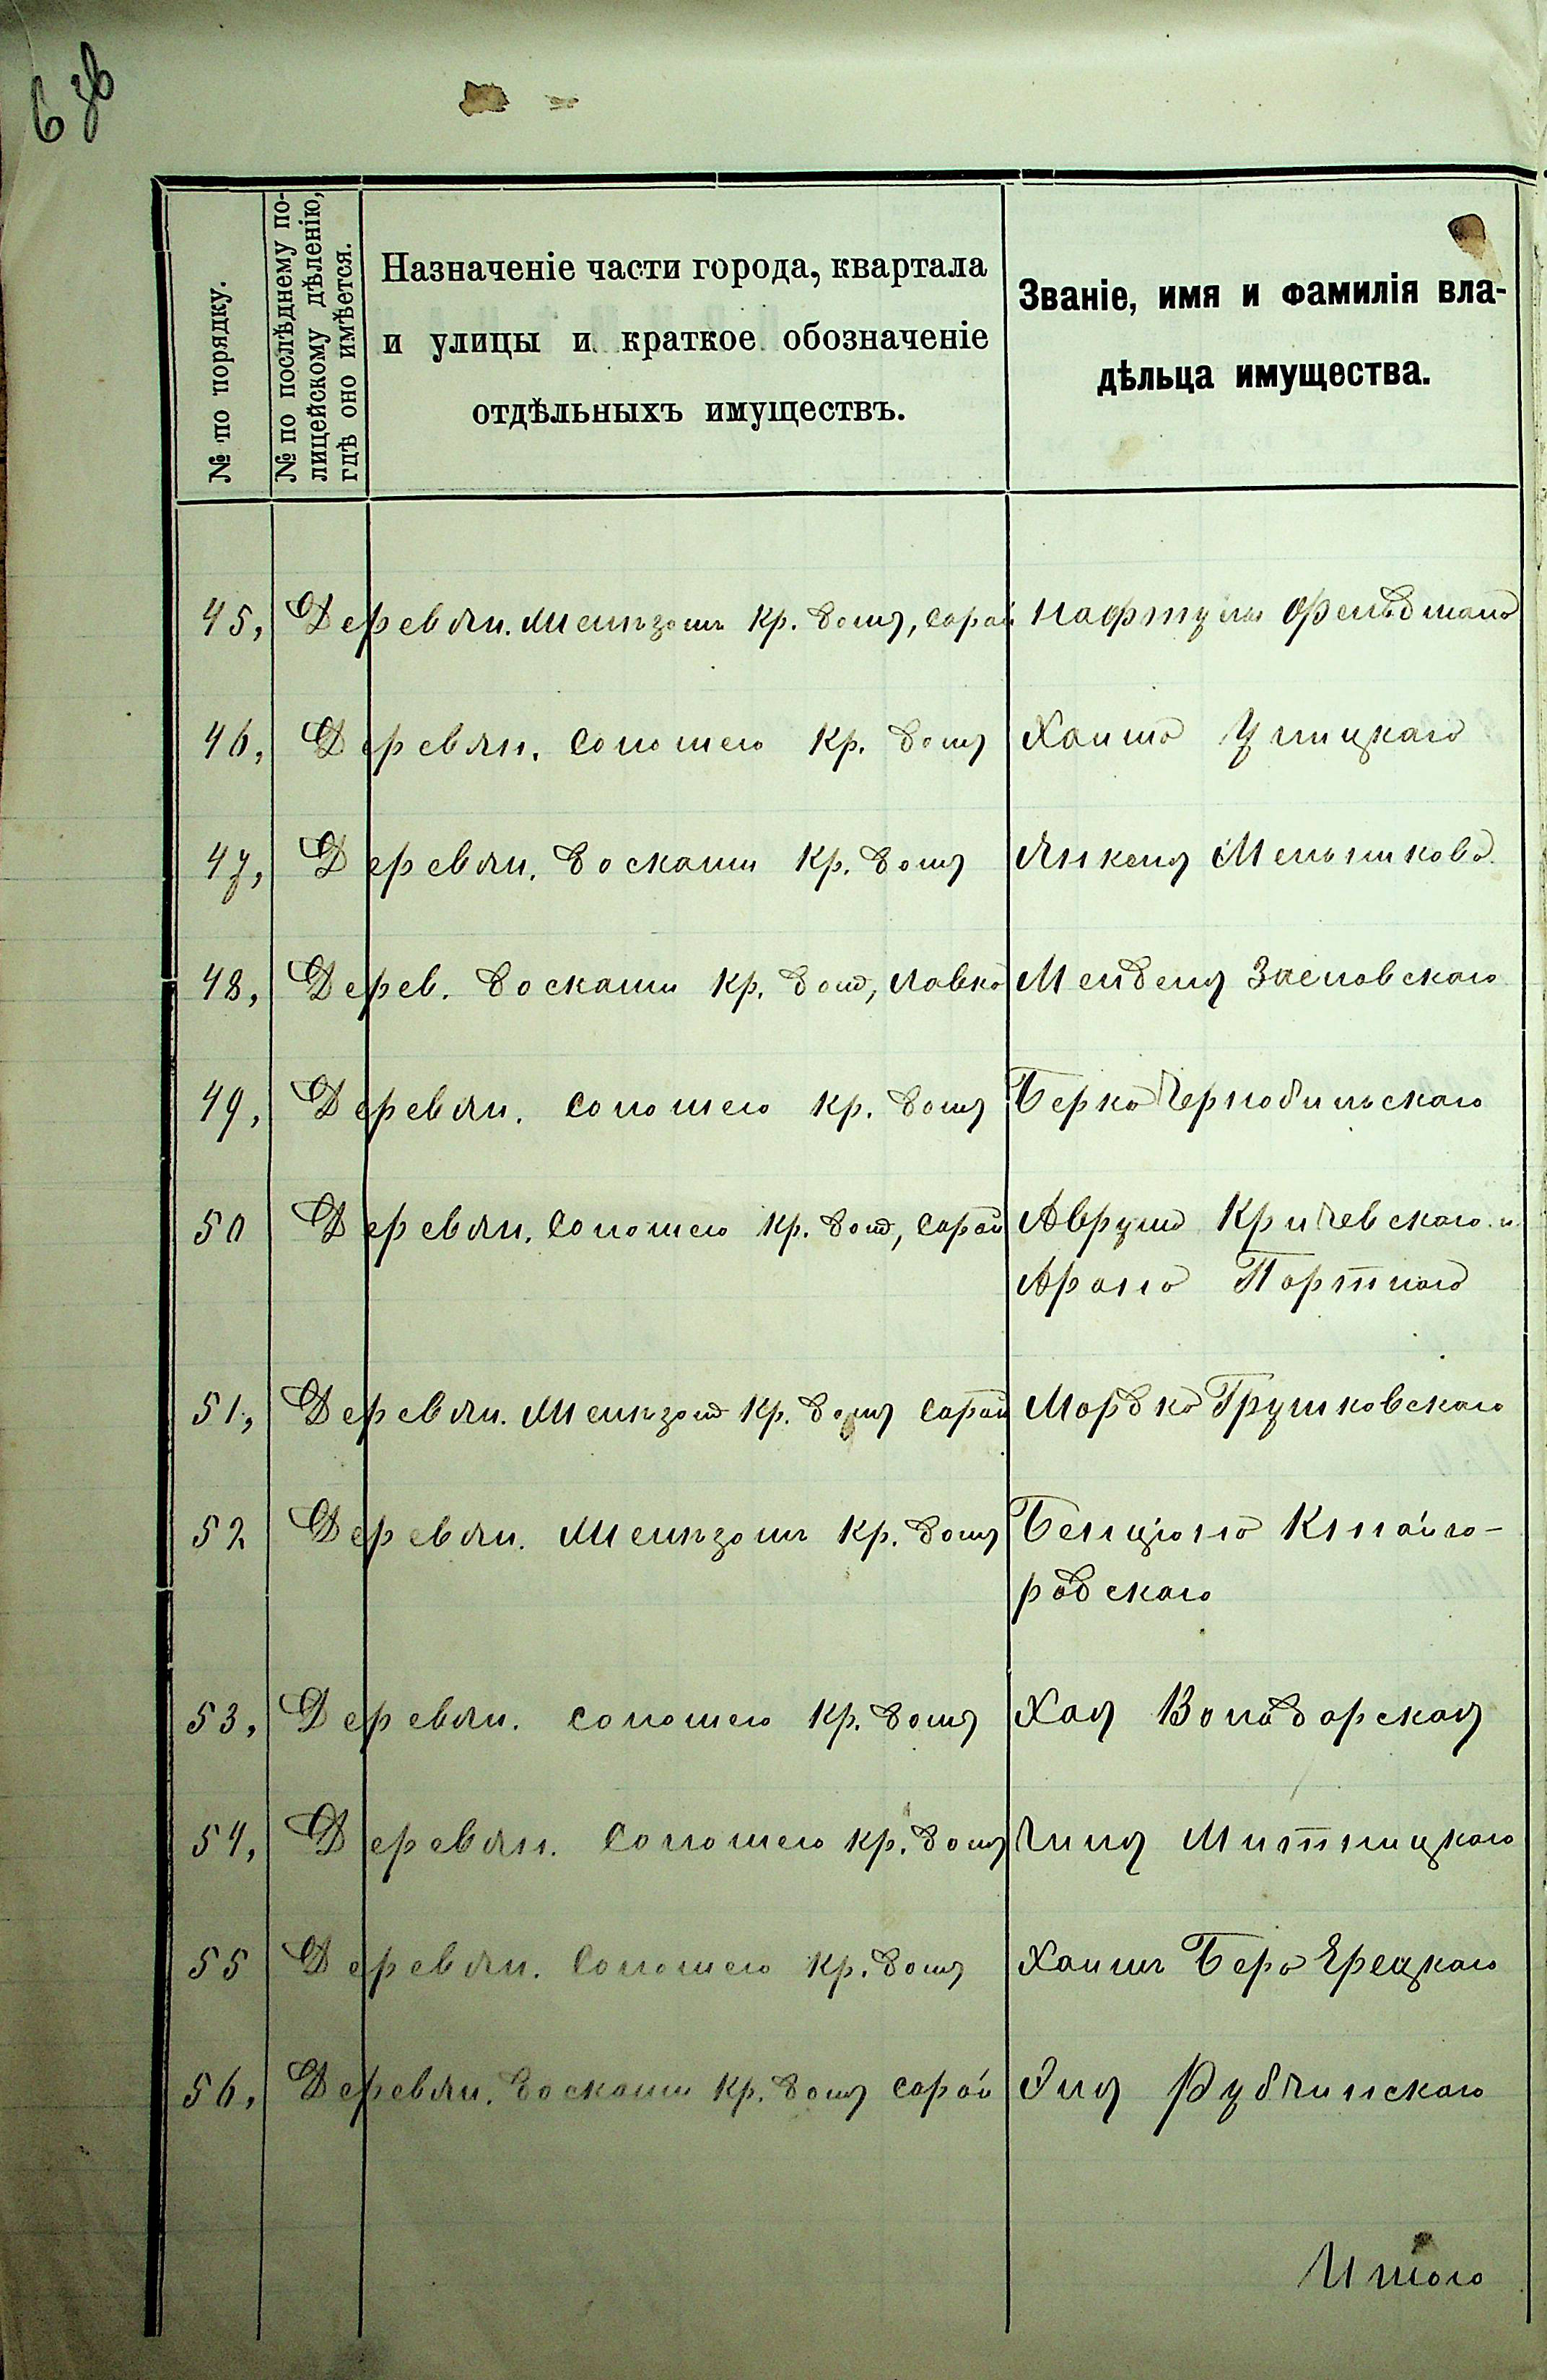 6 зв
№ по порядку.
№ по послѣднему по-
лицейскому дѣленію,
гдѣ оно имѣется.
Назначеніе части города, квартала
и улицы и краткое обозначеніе
отдѣльныхъ имуществъ.
Званіе, имя и фамилія вла-
дѣльца имущества.
45, Деревян. желѣзомъ кр. домъ, сарай Нафтула Фельдмана
46, Деревян. соломою кр. домъ Хаима Улицкаго
47, Деревян. досками кр. домъ Янкеля Мельникова
48, Дерев. досками кр. дом, лавка Менделя Заславскаго
49, Деревян. соломою кр. домъ Берка Чернобильскаго
50 Деревян. соломою кр. дом, сарай Аврума Кричевскаго и
Арона Портнаго
51, Деревян. желѣзом кр. домъ сарай Мордко Грушковскаго
52 Деревян. желѣзомъ кр. домъ Бенціона Клнайго-
родскаго
53, Деревян. соломою кр. домъ Хая Володарская
54, Деревян. соломою кр. домъ Чиля Митницкаго
55 Деревян. соломою кр. домъ Хаимъ Бера Ерецкаго
56, Деревян. досками кр. домъ сарай Эля Рубчинскаго
Итого